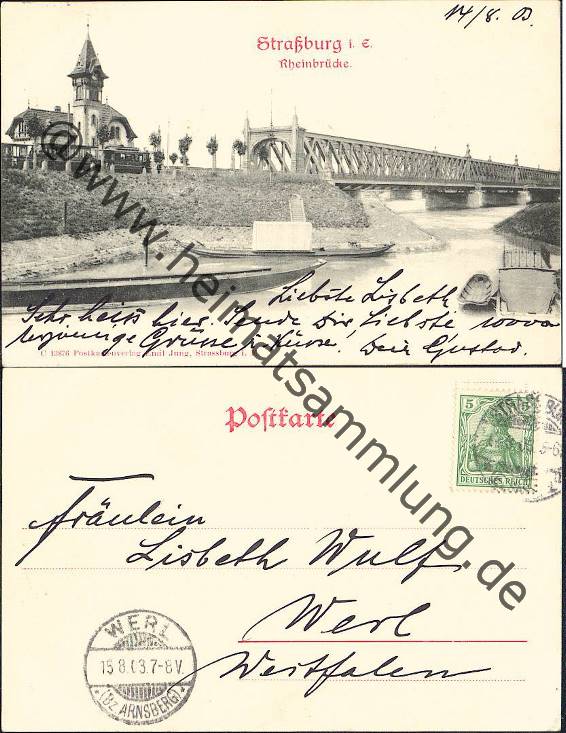 14/8. 03.
Straßburg i. E.
Rheinbrücke.
Liebste Lisbeth
Sehr heiss hier. Sende Dir, Liebste
Grüsse Küsse. Dein Gustav.
C 13876 Postkartenverlag Emil Jung, Strassburg i.
@www.heimatsammlung.de
Postkarte
5 5
DEUTSCHES REICH
Fräulein
Lisbeth Wulf
Werl
Westfalen
WERL
15.8.03.7-8V
*(BZ. ARNSBERG)*